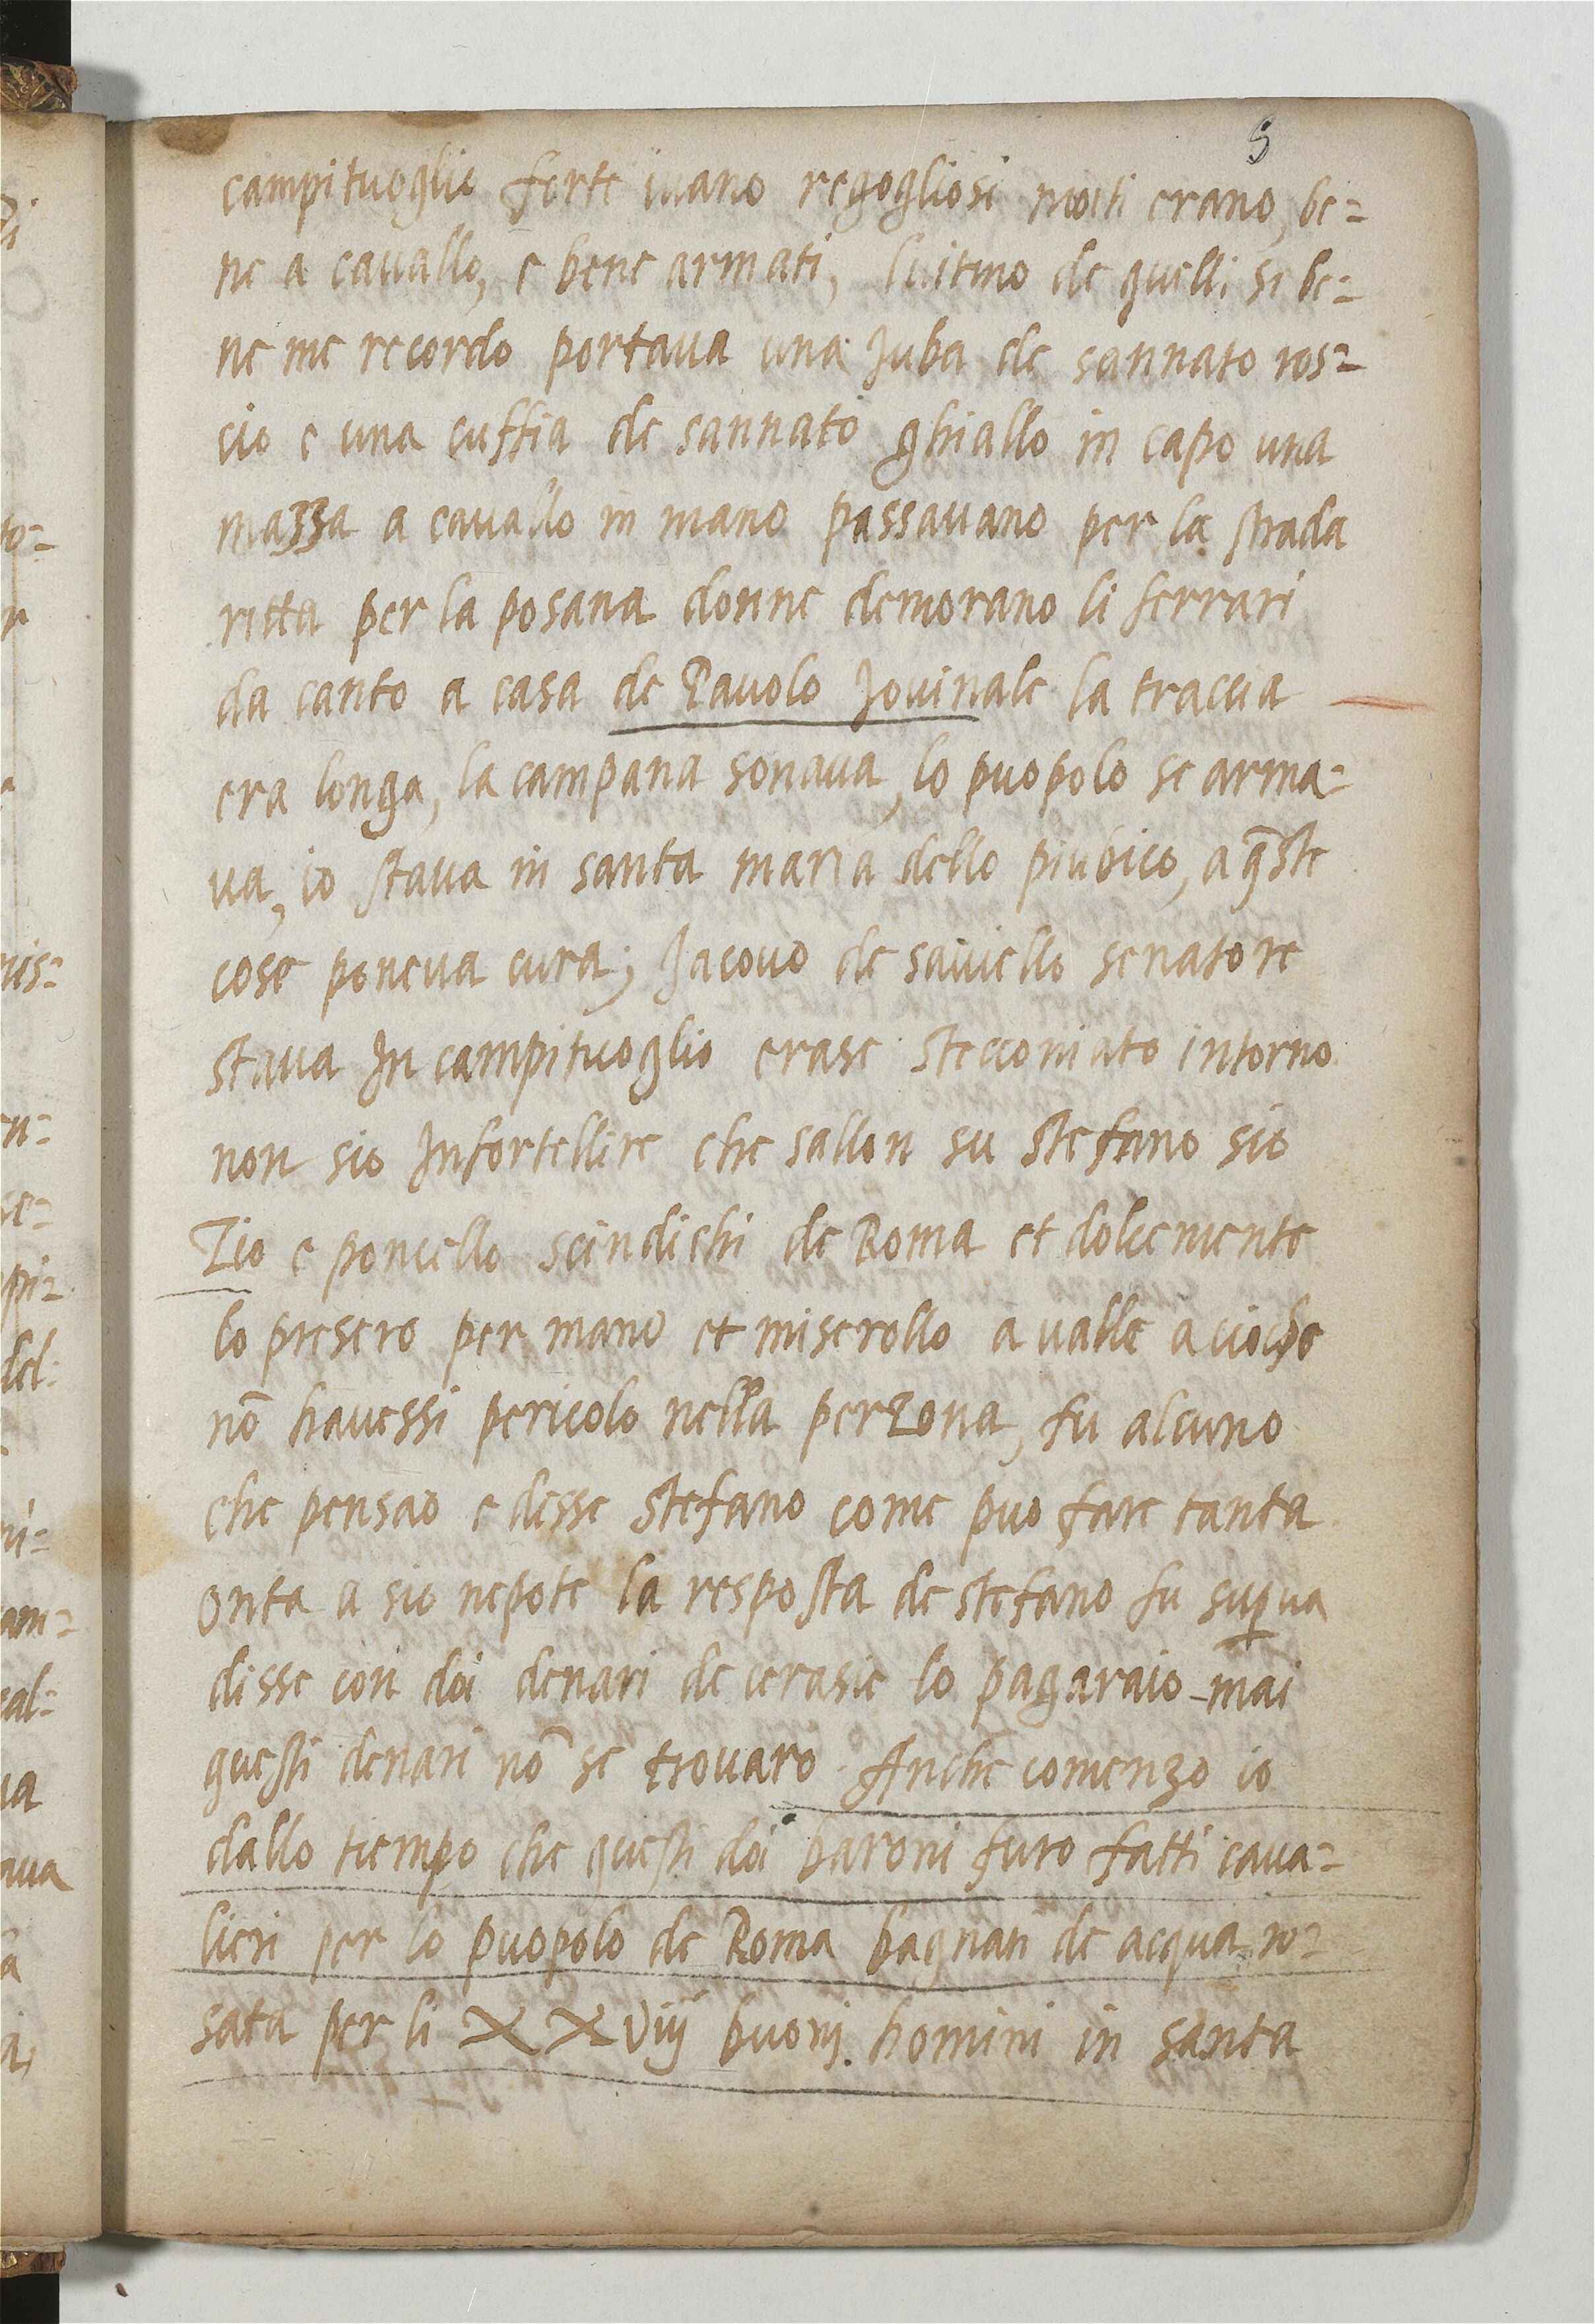 5
campituoglio forte iuano regogliosi moiti erano, be=
ne a cauallo, e bene armati, luitmo de quelli si be=
ne me recordo portaua una Juba de sannato ros=
cio e una cuffia de sannato ghiallo in capo una
mazza a cauallo in mano passauano per la strada
ritta per la posana donne demorano li ferrari
da canto a casa de Pauolo Jouinale la traccia
era longa, la campana sonaua, lo puopolo se arma=
ua, io staua in santa maria dello piubico, a q̄ste
cose poneua cura; Jacouo de sauiello senatore
staua In campituoglio erase stecconiato intorno
non sio Infortellire che sallon su stefano sio
Zio e poncello scindichi de Roma et dolcemente
lo presero per mano et miserollo a valle acioche
nō hauessi pericolo nella perzona, fu alcuno
che pensao e desse stefano come puo fare tanta
onta a sio nepote la resposta de stefano fu sup̱ua
disse con doi denari de cerasie lo pagaraio mai
questi denari nō se trouaro. Anche comenzo io
dallo tiempo che questi doi baroni furo fatti caua=
lieri per lo puopolo de Roma bagnati de acqua ro=
sata per li XXViij buonj homini in santa